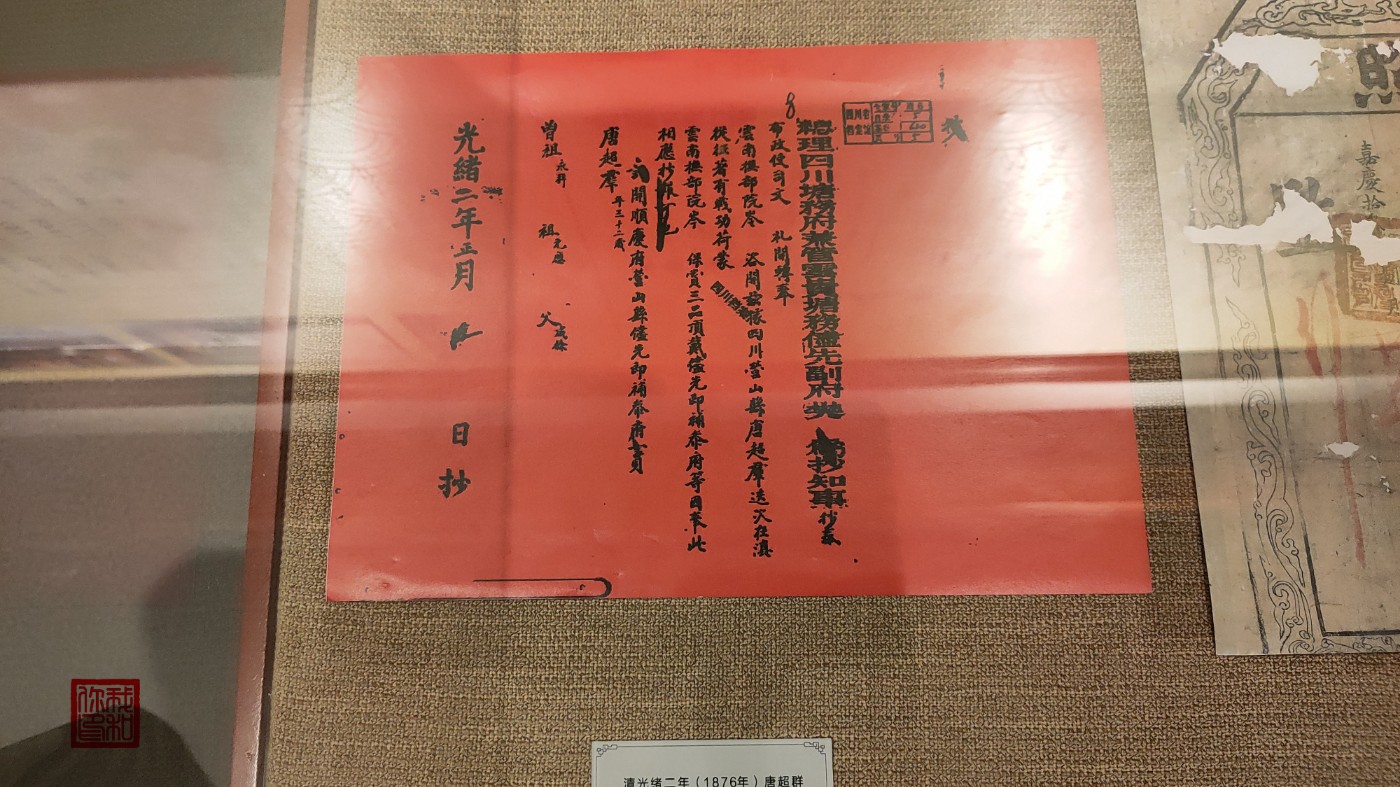 總理四川塘務府兼管雲貴塘務儘先副府樊 為抄知事抄奉
布政使司文 札開轉奉
雲南撫部院岑 咨開據四川營山縣唐超羣迭次在滇
從征著有戰功荷蒙
雲南撫部院岑 保賞三品頂戴儘先即補參府等因奉此
相應抄報
計開順慶府營山縣儘先即補參府壹員
唐超羣 年三十二歲
曾祖 永昇 祖 元應 父 成
光緒二年正月 日抄
嘉慶拾
照
清光绪二年(1876年)唐超群
你我
和